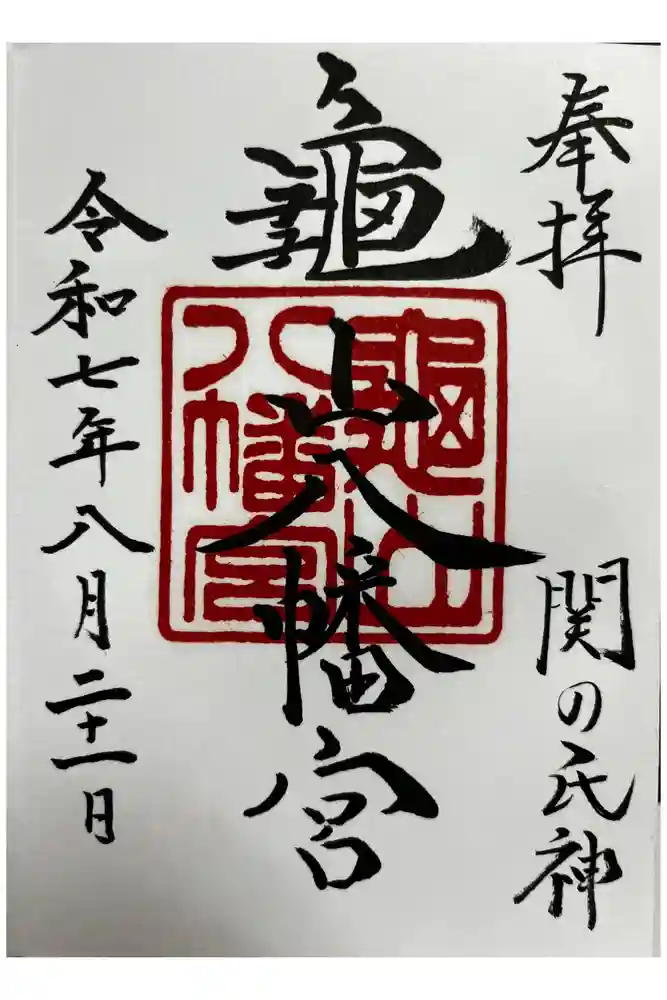 奉拝
関の氏神
龜山八幡宮
龜山
八幡宮
令和七年八月二十一日